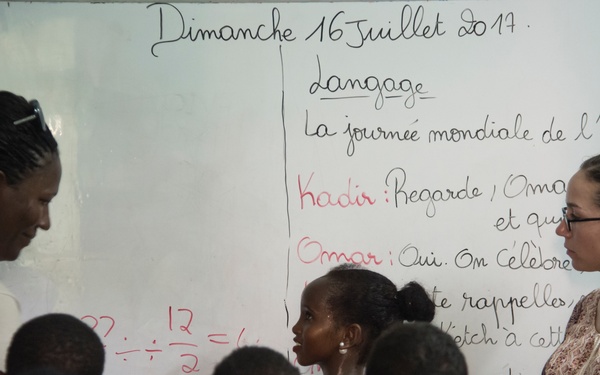 Dimanche 16 Juillet 2017.
Langage
La journée mondiale de l'
Kadir : Regarde, Oma
et qu
Omar : Oui. On célèbre
te rappelles,
à cett
?? ÷ ÷ 12/2 =